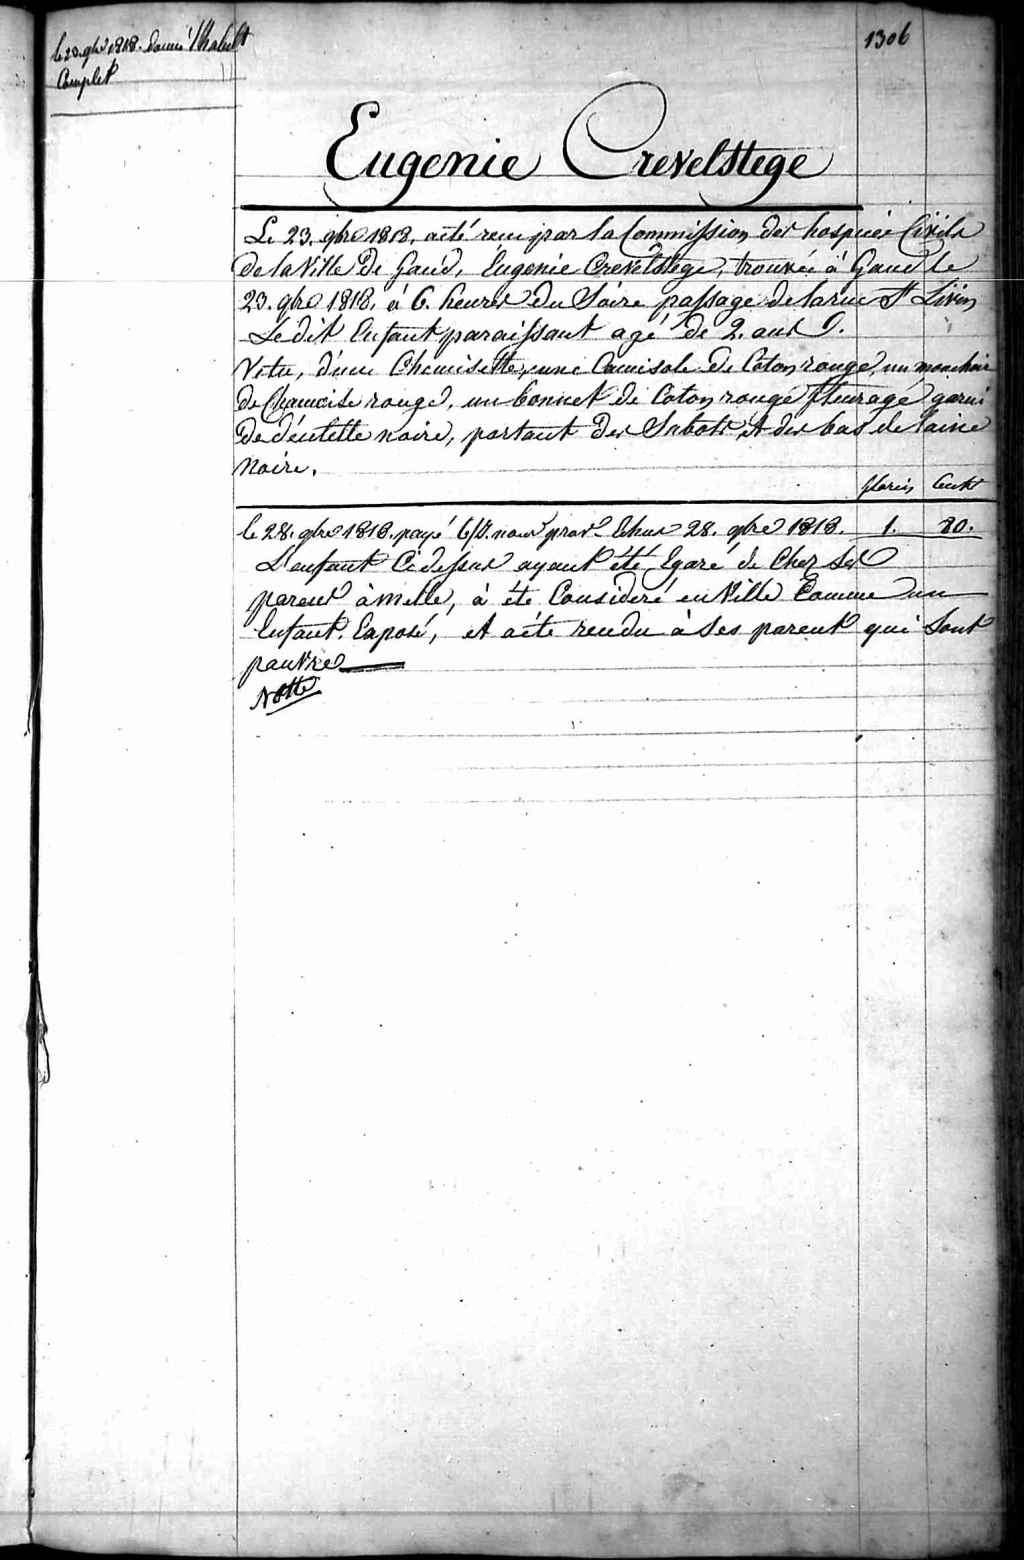 le 28. 9bre 1818. donné 1 habillt
Complet
1306
Eugenie Crevelstege
Le 23. 9bre 1818. a été recu par la Commission des hospices Civils
de la Ville De Gand, Eugenie Crevelstege, trouvée à Gand le
23. 9bre 1818. à 6. heures du Soire passage de la rue St Livin
Le dit Enfant paraissant agé de 2. ans
Vetu, d'une Chemisette, une Camisole de Coton rouge, un mouchoir
de Chamoise rouge, un bonnet de Coton rouge fleuragé garni
de dentelle noire, portant des Sabots, et des bas de laine
Noire.
florin Cents
le 28. 9bre 1818. payé nour prov Echus 28. 9bre 1818. 1. 20.
L'enfant Cidessus ayant été Egaré de Chez Ses
parens à melle, à éte Consideré en Ville Comme un
Enfant Exposé, et a éte rendu à Ses parent qui Sont
pauvre
Notte